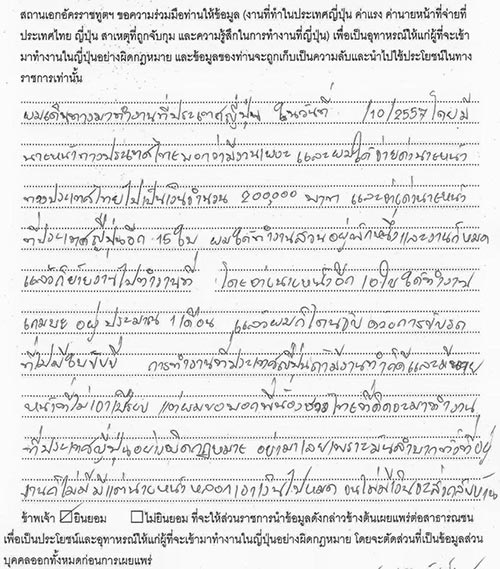 สถานเอกอัครราชทูตฯ ขอความร่วมมือท่านให้ข้อมูล (งานที่ทำในประเทศญี่ปุ่น ค่าแรง ค่านายหน้าที่จ่ายที่
ประเทศไทย ญี่ปุ่น สาเหตุที่ถูกจับกุม และความรู้สึกในการทำงานที่ญี่ปุ่น) เพื่อเป็นอุทาหรณ์ให้แก่ผู้ที่จะเข้า
มาทำงานในญี่ปุ่นอย่างผิดกฎหมาย และข้อมูลของท่านจะถูกเก็บเป็นความลับและนำไปใช้ประโยชน์ในทาง
ราชการเท่านั้น
ผมเดินทางมาทำงานที่ประเทศญี่ปุ่น ในวันที่ /10/2557 โดยมี
นายหน้าทางประเทศไทยบอกว่ามีงานเยอะ และผมได้จ่ายค่านายหน้า
ทางประเทศไทยไปเป็นเงินจำนวน 200,000 บาท และจ่ายค่านายหน้า
ที่ประเทศญี่ปุ่นอีก 15ใบ ผมได้ทำงานสวนอยู่พักหนึ่งและงานก็หมด
แล้วก็ย้ายงานไปทำงานที่ โดยจ่ายนายหน้าอีก 10ใบ ได้ทำงาน
อยู่ประมาณ 1เดือน แล้วผมก็โดนจับ ด้วยการขับรถ
ที่ไม่มีใบขับขี่ การทำงานที่ประเทศญี่ปุ่นถ้ามีงานทำก็ดีและมีนาย
หน้าที่ไม่เอาเปรียบ แต่ผมขอบอกพี่น้องชาวไทยที่คิดจะมาทำงาน
ที่ประเทศญี่ปุ่นอย่างผิดกฎหมาย อย่ามาเลยเพราะมันลำบากทั้งที่อยู่
งานก็ไม่มี มีแต่นายหน้าหลอกเอาเงินไปหมด จนไม่มีเงินจะส่งกลับบ้าน
ข้าพเจ้า ☑ยินยอม ☐ไม่ยินยอม ที่จะให้ส่วนราชการนำข้อมูลดังกล่าวข้างต้นเผยแพร่ต่อสาธารณชน
เพื่อเป็นประโยชน์และอุทาหรณ์ให้แก่ผู้ที่จะเข้ามาทำงานในญี่ปุ่นอย่างผิดกฎหมาย โดยจะตัดส่วนที่เป็นข้อมูลส่วน
บุคคลออกทั้งหมดก่อนการเผยแพร่